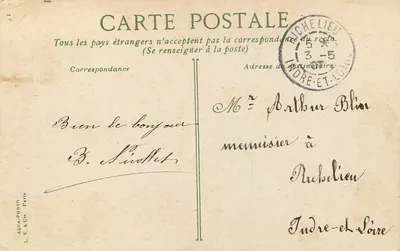 CARTE POSTALE
Tous les pays étrangers n'acceptent pas la correspondance au recto.
(Se renseigner à la poste)
Correspondance
Adresse du destinataire
RICHELIEU
3-5
INDRE-ET-LOIRE
Bien le bonjour
B.
Mr Arthur Blin
menuisier à
Richelieu
Indre-et-Loire
L. V. & Cie